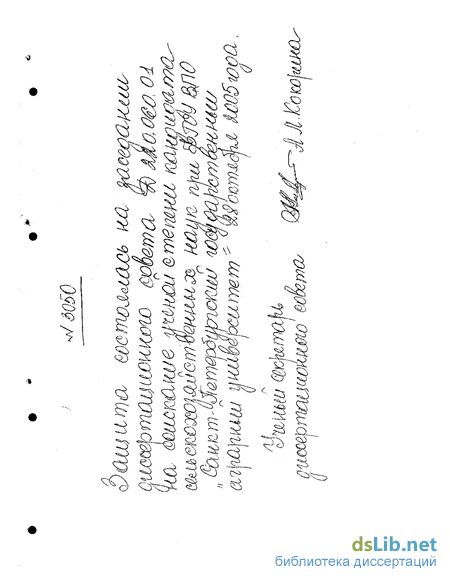 № 3050
Защита состоялась на заседании
диссертационного совета Д 220.060.01
на соискание ученой степени кандидата
сельскохозяйственных наук при ФГОУ ВПО
"Санкт-Петербургский государственный
аграрный университет" 28 октября 2005 года.
Ученый секретарь
диссертационного совета А.М. Кокорина
dsLib.net
библиотека диссертаций